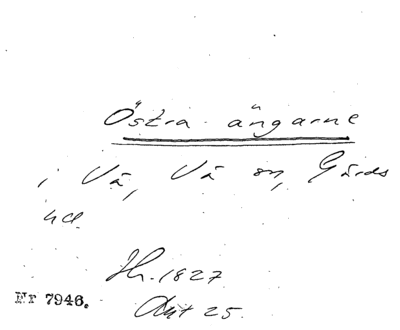 Östra ängarne
i Vä, Vä sn, Gärds
hd.
Hn. 1827
Akt 25.
Nr 7946.